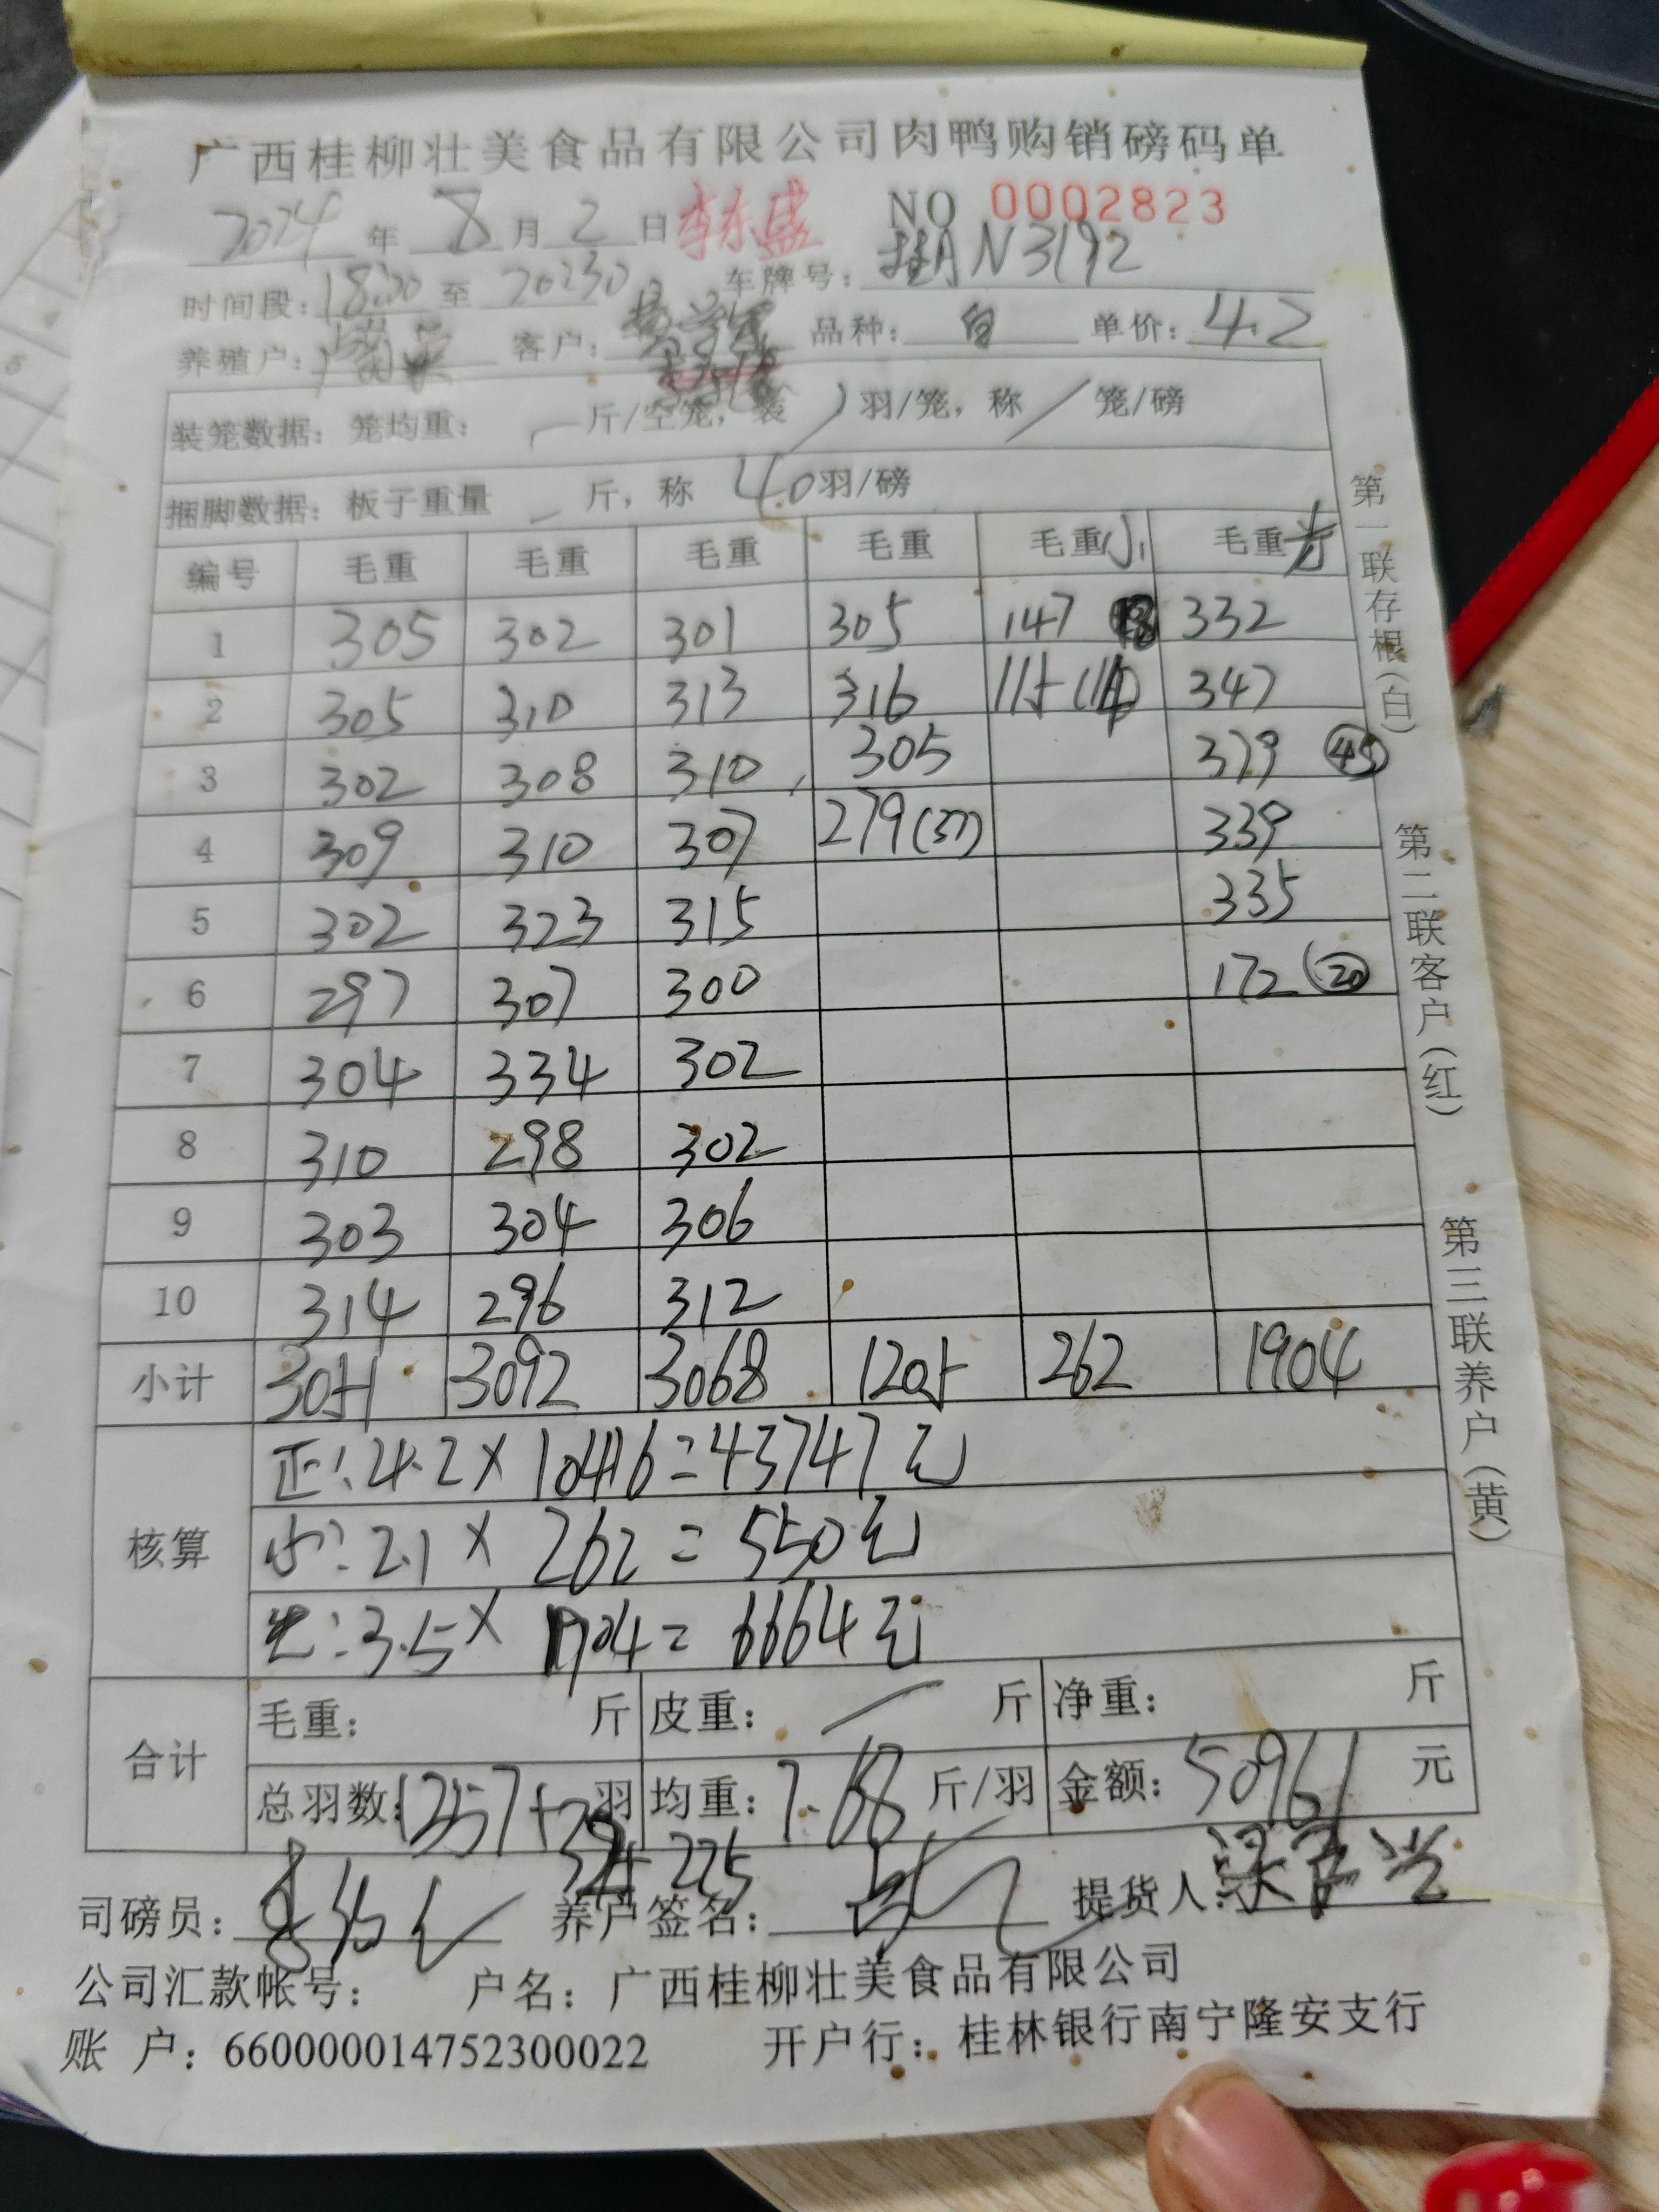 广西桂柳壮美食品有限公司肉鸭购销磅码单
2024 年 8 月 2 日 李东盛 NO 0002823
时间段: 18:20 至 20:30 车牌号: 桂AN3192
养殖户: 客户: 品种: 白 单价: 4.2
装笼数据: 笼均重: 斤/空笼, 装 羽/笼, 称 / 笼/磅
捆脚数据: 板子重量 斤, 称 40 羽/磅
编号 毛重 毛重 毛重 毛重 毛重小 毛重老
1 305 302 301 305 147 332
2 305 310 313 316 115 347
3 302 308 310 305 379 (45)
4 309 310 307 279(37) 339
5 302 323 315 335
6 297 307 300 172 (20)
7 304 334 302
8 310 298 302
9 303 304 306
10 314 296 312
小计 3051 3092 3068 1205 262 1904
核算
正: 4.2 × 10416 = 43747元
小: 2.1 × 262 = 550元
老: 3.5 × 1904 = 6664元
合计
毛重: 斤 皮重: / 斤 净重: 斤
总羽数: 1357+ 羽 均重: 7.68 斤/羽 金额: 50961 元
+225
司磅员: 养户签名: 提货人:
公司汇款帐号: 户名: 广西桂柳壮美食品有限公司
账 户: 660000014752300022 开户行: 桂林银行南宁隆安支行
第一联存根(白)
第二联客户(红)
第三联养户(黄)